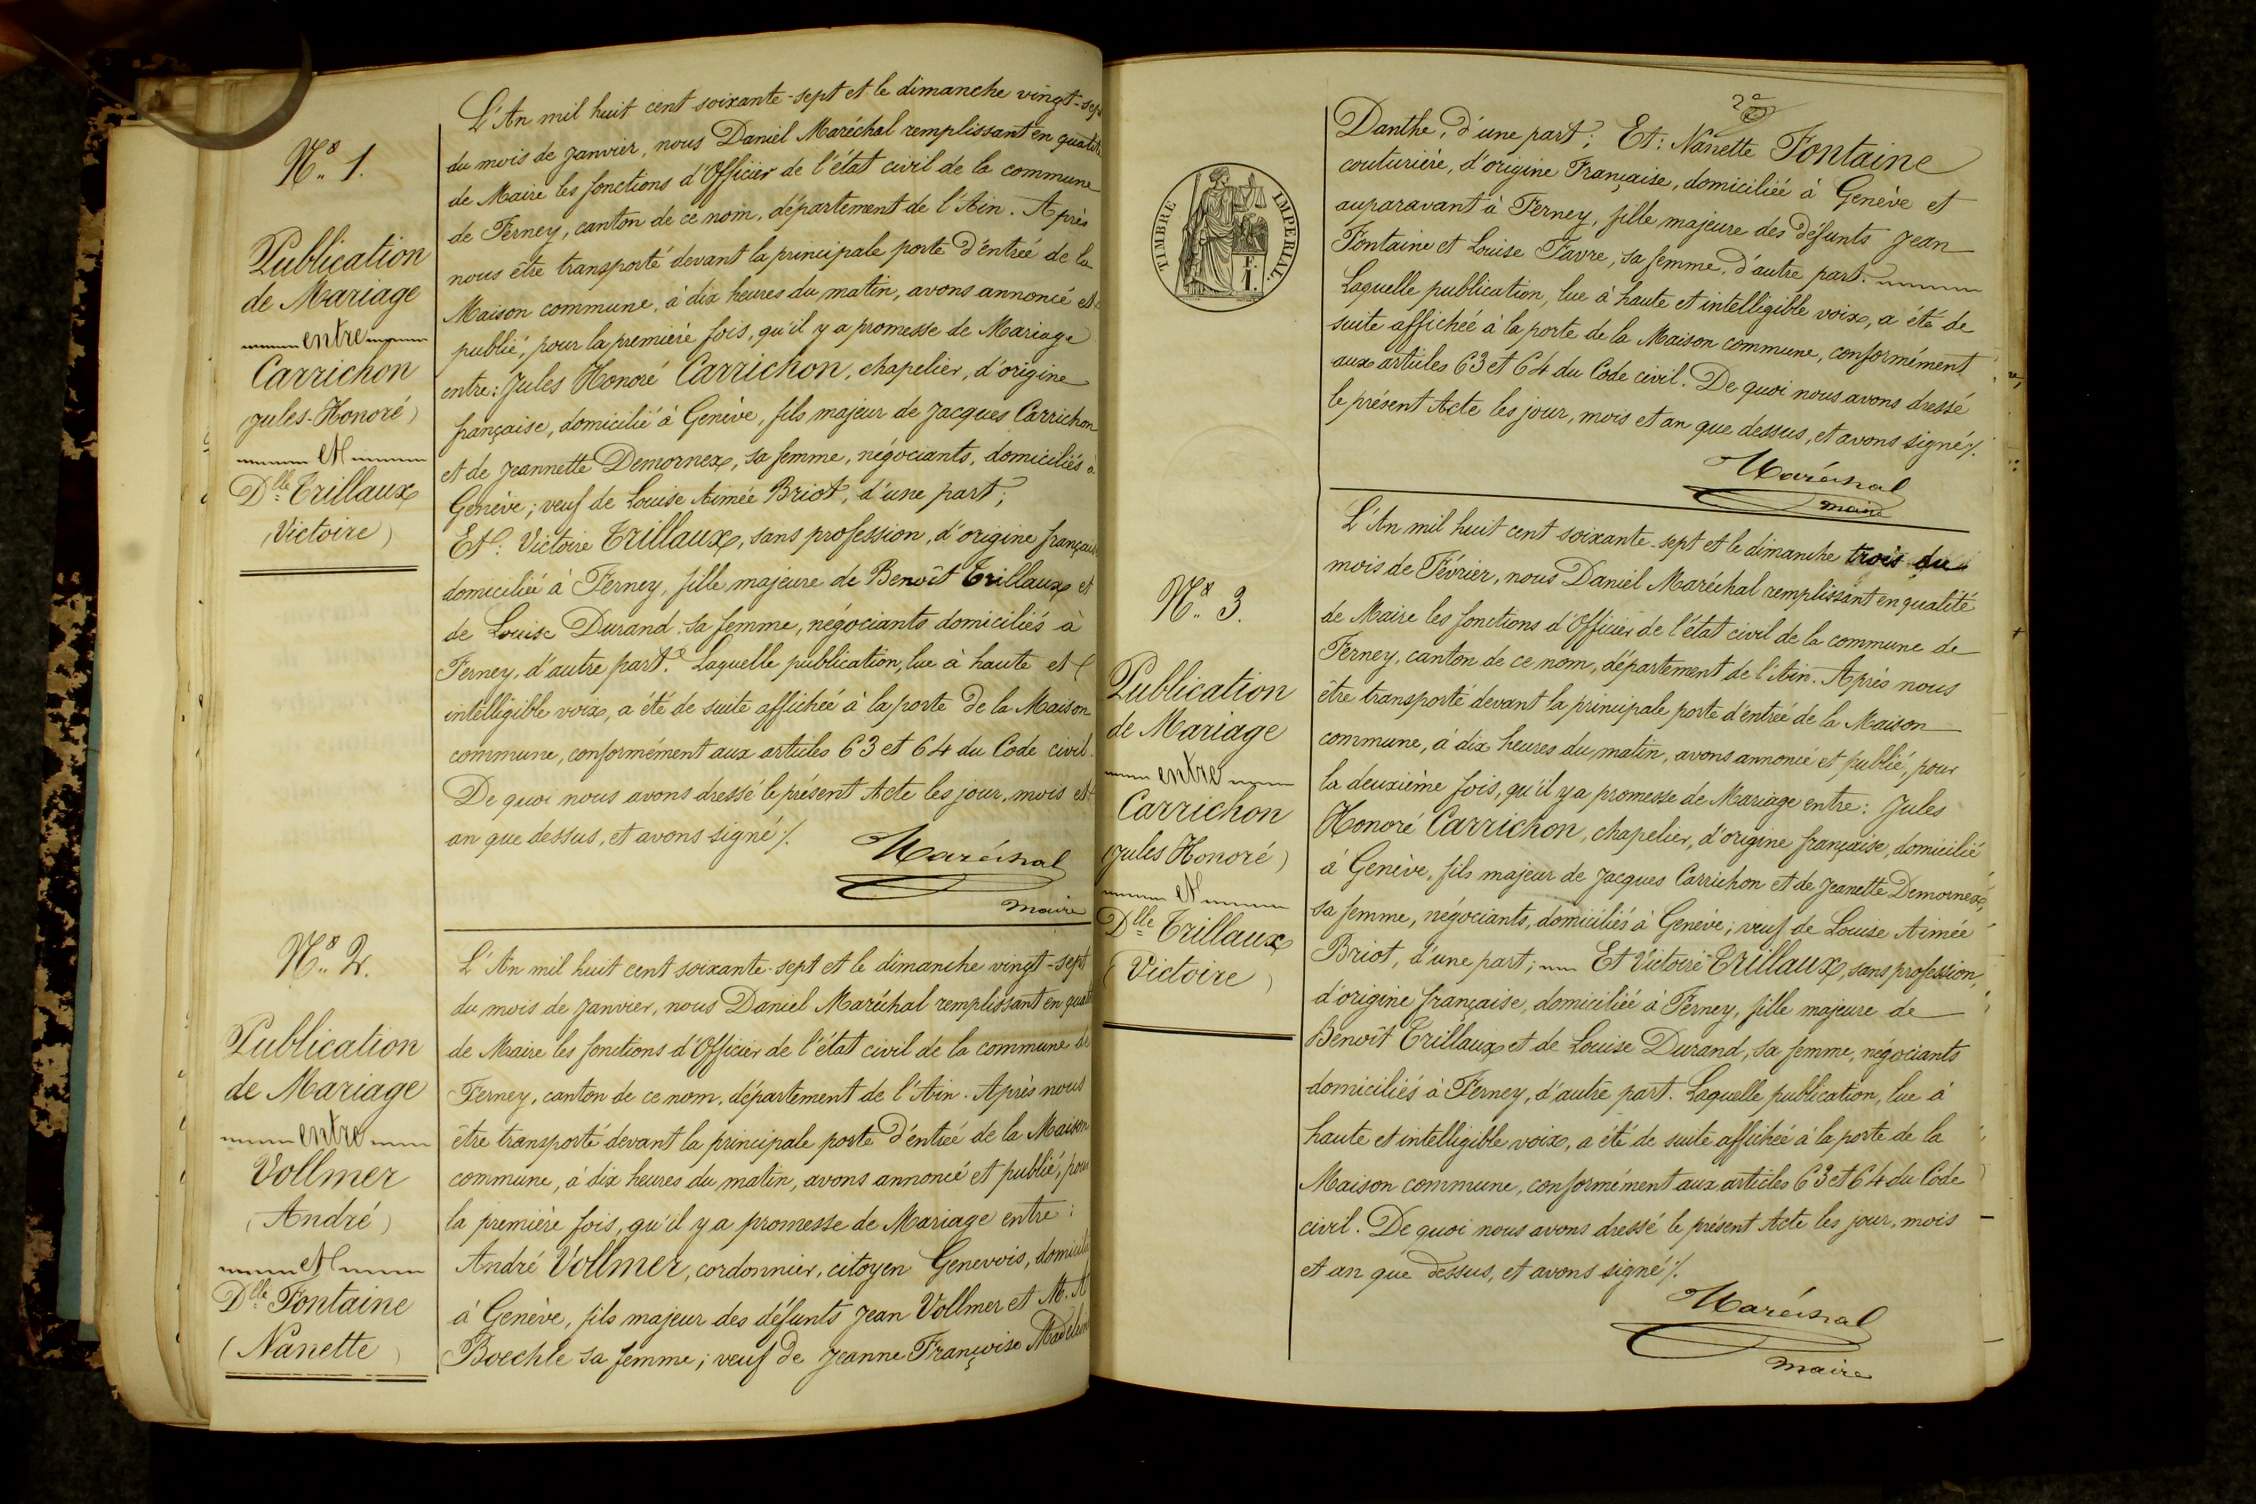 N° 1.
Publication
de Mariage
entre
Carrichon
Jules-Honoré)
et
Dlle Trillaux
(Victoire)
L'An mil huit cent soixante-sept et le dimanche vingt-sept
du mois de Janvier, nous Daniel Maréchal remplissant en qualité
de Maire les fonctions d'Officier de l'état civil de la commune
de Ferney, canton de ce nom, département de l'Ain. Après
nous être transporté devant la principale porte d'entrée de la
Maison commune, à dix heures du matin, avons annoncé et
publié, pour la première fois, qu'il y a promesse de Mariage
entre: Jules Honoré Carrichon, chapelier, d'origine
française, domicilié à Genève, fils majeur de Jacques Carrichon
et de Jeannette Demornex, sa femme, négociants, domiciliés à
Genève; veuf de Louise Aimée Briot, d'une part;
Et: Victoire Trillaux, sans profession, d'origine française
domiciliée à Ferney, fille majeure de Benoît Trillaux et
de Louise Durand sa femme, négociants domiciliés à
Ferney, d'autre part. Laquelle publication, lue à haute et
intelligible voix, a été de suite affichée à la porte de la Maison
commune, conformément aux articles 63 et 64 du Code civil.
De quoi nous avons dressé le présent Acte les jour, mois et
an que dessus, et avons signé /.
Maréchal
maire
N° 2.
Publication
de Mariage
entre
Vollmer
(André)
et
Dlle Fontaine
(Nanette)
L'An mil huit cent soixante-sept et le dimanche vingt-sept
du mois de Janvier, nous Daniel Maréchal remplissant en qualité
de Maire les fonctions d'Officier de l'état civil de la commune de
Ferney, canton de ce nom, département de l'Ain. Après nous
être transporté devant la principale porte d'entrée de la Maison
commune, à dix heures du matin, avons annoncé et publié, pour
la première fois, qu'il y a promesse de Mariage entre:
André Vollmer, cordonnier, citoyen Genevois, domicilié
à Genève, fils majeur des défunts Jean Vollmer et M. A
Boechle sa femme; veuf de Jeanne Françoise Madeleine
TIMBRE IMPERIAL.
E. I.
2e
Danthe, d'une part; Et: Nanette Fontaine
couturière, d'origine Française, domiciliée à Genève et
auparavant à Ferney, fille majeure des défunts Jean
Fontaine et Louise Favre, sa femme, d'autre part.
Laquelle publication, lue à haute et intelligible voix, a été de
suite affichée à la porte de la Maison commune, conformément
aux articles 63 et 64 du Code civil. De quoi nous avons dressé
le présent Acte les jour, mois et an que dessus, et avons signé /.
Maréchal
maire
N° 3.
Publication
de Mariage
entre
Carrichon
(Jules Honoré)
et
Dlle Trillaux
(Victoire)
L'An mil huit cent soixante-sept et le dimanche trois du
mois de Février, nous Daniel Maréchal remplissant en qualité
de Maire les fonctions d'Officier de l'état civil de la commune de
Ferney, canton de ce nom, département de l'Ain. Après nous
être transporté devant la principale porte d'entrée de la Maison
commune, à dix heures du matin, avons annoncé et publié, pour
la deuxième fois, qu'il y a promesse de Mariage entre: Jules
Honoré Carrichon, chapelier, d'origine française, domicilié
à Genève, fils majeur de Jacques Carrichon et de Jeanette Demornex,
sa femme, négociants, domiciliés à Genève; veuf de Louise Aimée
Briot, d'une part; Et Victoire Trillaux, sans profession,
d'origine française, domiciliée à Ferney, fille majeure de
Benoît Trillaux et de Louise Durand, sa femme, négociants
domiciliés à Ferney, d'autre part. Laquelle publication, lue à
haute et intelligible voix, a été de suite affichée à la porte de la
Maison commune, conformément aux articles 63 et 64 du Code
civil. De quoi nous avons dressé le présent Acte les jour, mois
et an que dessus, et avons signé /.
Maréchal
maire